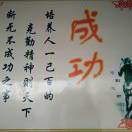 成功
培养人一己百的
意勤精神则天下
断无不成功之事